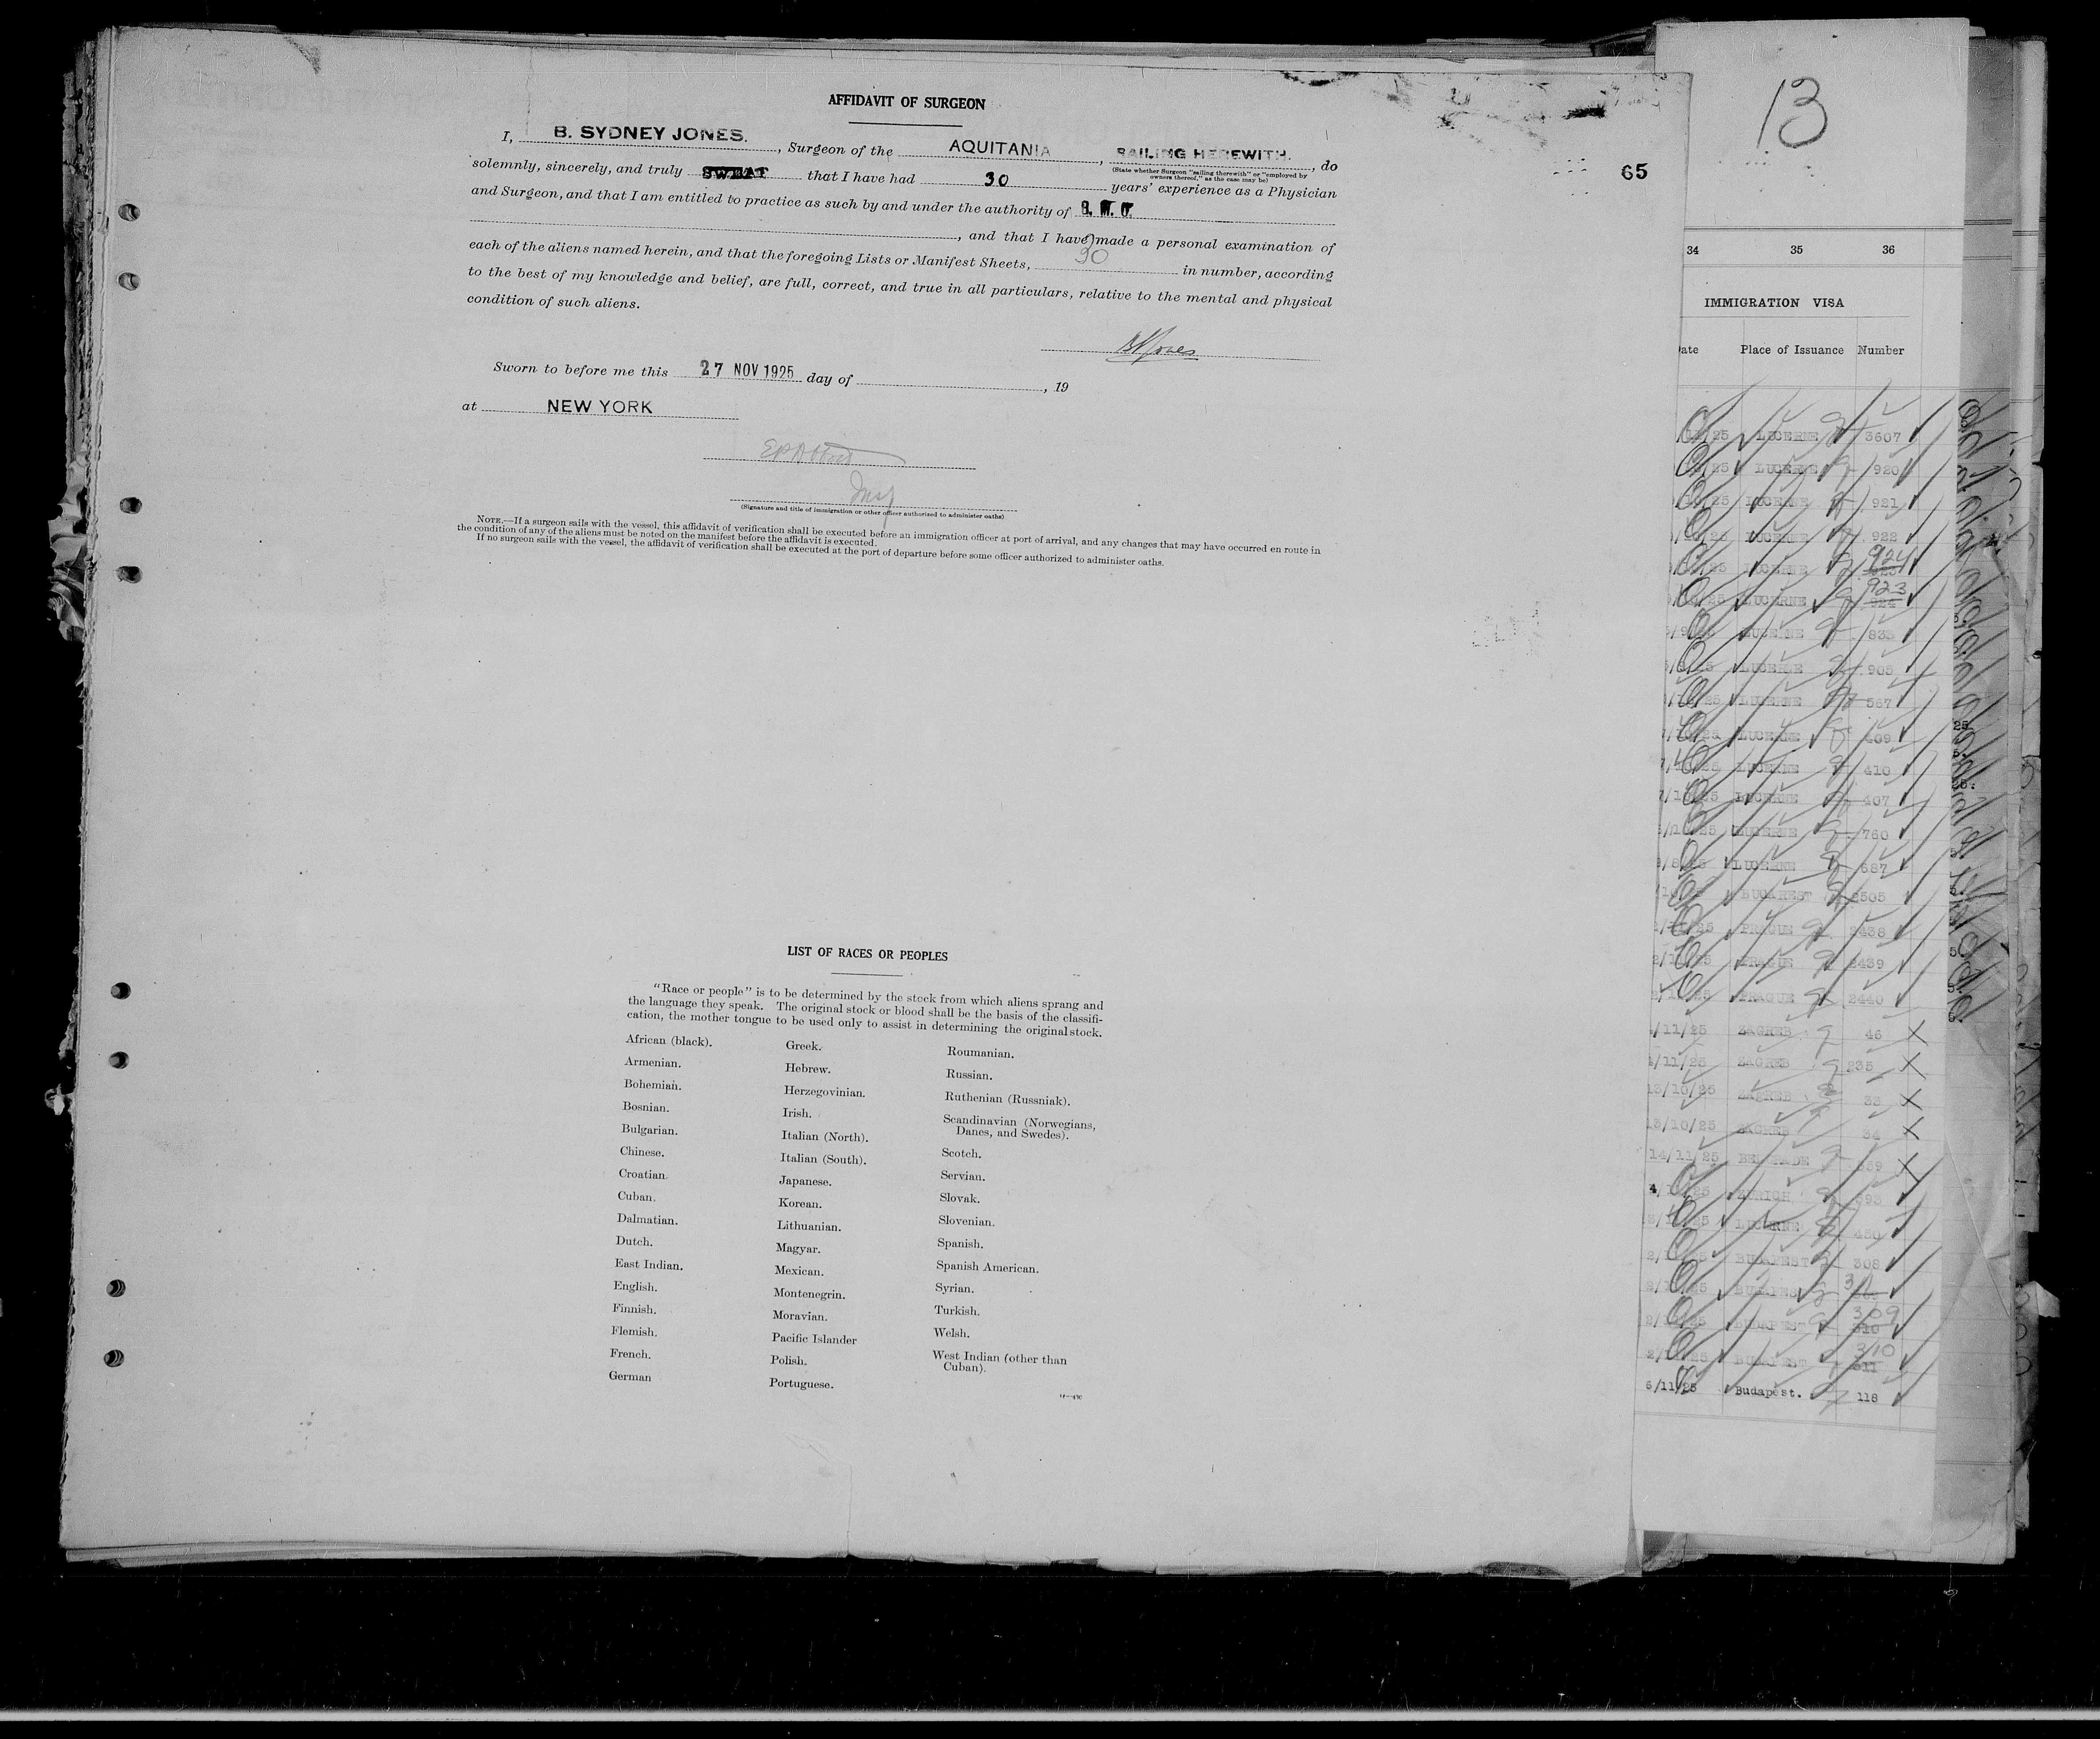 AFFIDAVIT OF SURGEON
I, B. SYDNEY JONES., Surgeon of the AQUITANIA, SAILING HEREWITH., do
(State whether Surgeon "sailing therewith" or "employed by
owners thereof," as the case may be)
solemnly, sincerely, and truly SWEAR that I have had 30 years' experience as a Physician
and Surgeon, and that I am entitled to practice as such by and under the authority of
, and that I have made a personal examination of
each of the aliens named herein, and that the foregoing Lists or Manifest Sheets, 30 in number, according
to the best of my knowledge and belief, are full, correct, and true in all particulars, relative to the mental and physical
condition of such aliens.
Jones
Sworn to before me this 27 NOV 1925 day of , 19
at NEW YORK
Insp
(Signature and title of immigration or other officer authorized to administer oaths)
NOTE.—If a surgeon sails with the vessel, this affidavit of verification shall be executed before an immigration officer at port of arrival, and any changes that may have occurred en route in
the condition of any of the aliens must be noted on the manifest before the affidavit is executed.
If no surgeon sails with the vessel, the affidavit of verification shall be executed at the port of departure before some officer authorized to administer oaths.
65
LIST OF RACES OR PEOPLES
"Race or people" is to be determined by the stock from which aliens sprang and
the language they speak. The original stock or blood shall be the basis of the classifi-
cation, the mother tongue to be used only to assist in determining the original stock.
African (black).
Armenian.
Bohemian.
Bosnian.
Bulgarian.
Chinese.
Croatian.
Cuban.
Dalmatian.
Dutch.
East Indian.
English.
Finnish.
Flemish.
French.
German
Greek.
Hebrew.
Herzegovinian.
Irish.
Italian (North).
Italian (South).
Japanese.
Korean.
Lithuanian.
Magyar.
Mexican.
Montenegrin.
Moravian.
Pacific Islander
Polish.
Portuguese.
Roumanian.
Russian.
Ruthenian (Russniak).
Scandinavian (Norwegians,
Danes, and Swedes).
Scotch.
Servian.
Slovak.
Slovenian.
Spanish.
Spanish American.
Syrian.
Turkish.
Welsh.
West Indian (other than
Cuban).
13
34 35 36
IMMIGRATION VISA
ate Place of Issuance Number
25 LUCERNE 3607
25 LUCERNE 920
25 LUCERNE 921
25 LUCERNE 922
25 LUCERNE 924
25 LUCERNE 923 924
LUCERNE 835
LUCERNE 905
25 LUCERNE 567
25 LUCERNE 409
25 LUCERNE 410
25 LUCERNE 407
25 LUCERNE 760
LUCERNE 687
BUCAREST 2505
25 PRAGUE 2438
PRAGUE 2439
PRAGUE 2440
/11/25 ZAGREB 46
/11/25 ZAGREB 235
13/10/25 ZAGREB 33
13/10/25 ZAGREB 34
14/11/25 BELGRADE
ZURICH
25 LUCERNE 450
BUDAPEST 308
25 BUDAPEST
BUDAPEST 309 310
25 BUDAPEST 310 311
6/11/25 Budapest. 118